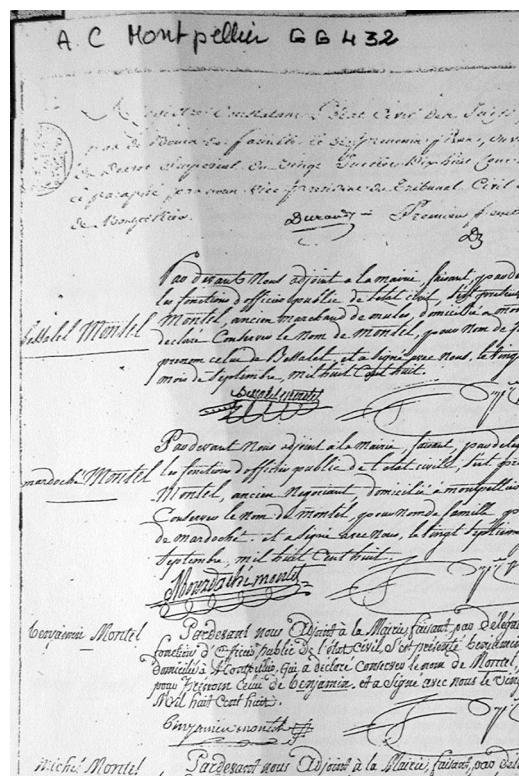 A.C Montpellier GG 432
Registre Constatant l'Etat Civil des Juifs
de famille et de prénom fixes,
Decret impérial du vingt juillet dix huit Cent
paraphé par nous Vice président du Tribunal Civil
de Montpellier. Durand Premiere
Par devant Nous adjoint a la mairie, faisant, par
les fonctions d'officier public de l'état civil, s'est présenté
Bessalel Montel
Montel, ancien marchand de mules, domicilié a
déclaré Conserver le Nom de Montel, pour Nom de
prénom celui de Bessalel, et a signé avec Nous, le vingt
mois de Septembre, mil huit Cent huit.
Bessalel montel
Pardevant Nous adjoint à la Mairie, faisant, par
mardoché Montel
les fonctions d'officier public de l'état civil, s'est
Montel, ancien Negociant, domicilié a montpellier
Conserver le nom de montel, pour nom de famille,
de mardoché. et a signé avec nous, le vingt septieme
Septembre, mil huit Cent huit.
Mourdahi montel
benjamin Montel
Pardevant nous Adjoint à la Mairie, faisant, par Déléga
fonction d'officier public de l'état civil, s'est présenté benjamin
domicilié à Montpellier, qui a déclaré Conserver le nom de Montel,
pour prénom Celui de benjamin. et a signé avec nous le vingt
Mil huit Cent huit.
Benjamin montel
Miché Montel
Pardevant nous Adjoint à la Mairie, faisant, par Dél